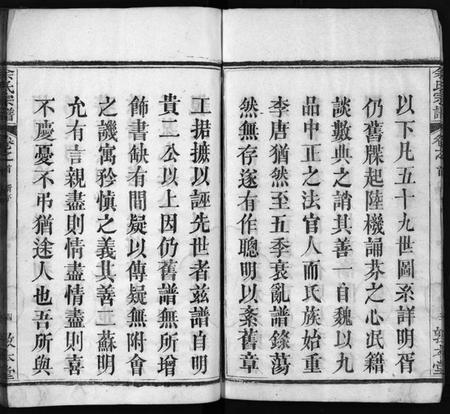 以下凡五十九世圖系詳明胥
仍舊牒起陸機誦芬之心泯籍
談數典之誚其善一自魏以九
品中正之法官人而氏族始重
李唐猶然至五季衰亂譜籙蕩
然無存遂有作聰明以紊舊章
工捃摭以誣先世者茲譜自明
貴二公以上因仍舊譜無所增
飾書缺有間疑以傳疑無附會
之譏寓矜慎之義其善二蘇明
允有言親盡則情盡情盡則喜
不慶憂不弔猶途人也吾所與
余氏宗譜
卷之首
敦本堂